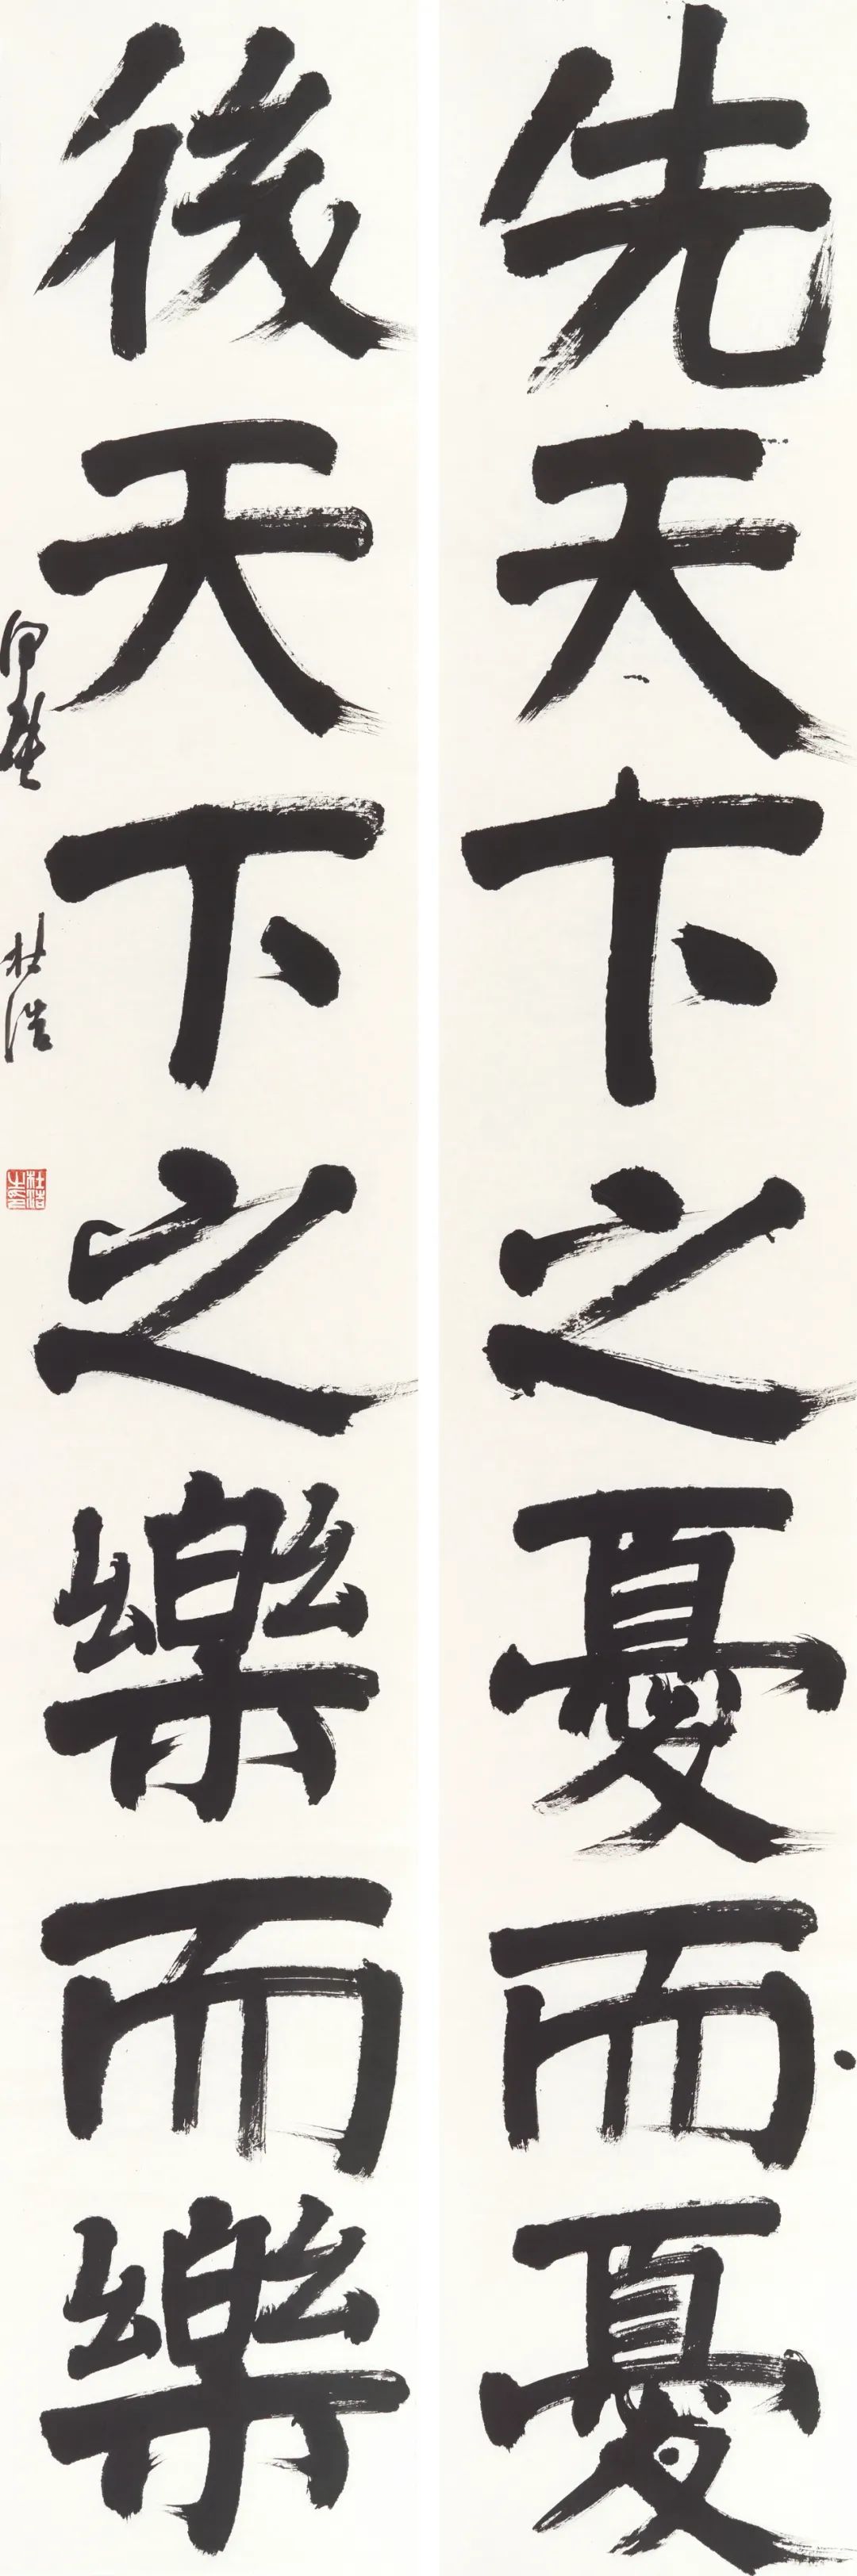 先天下之憂而憂
後天下之樂而樂
杜浩
杜浩
之印